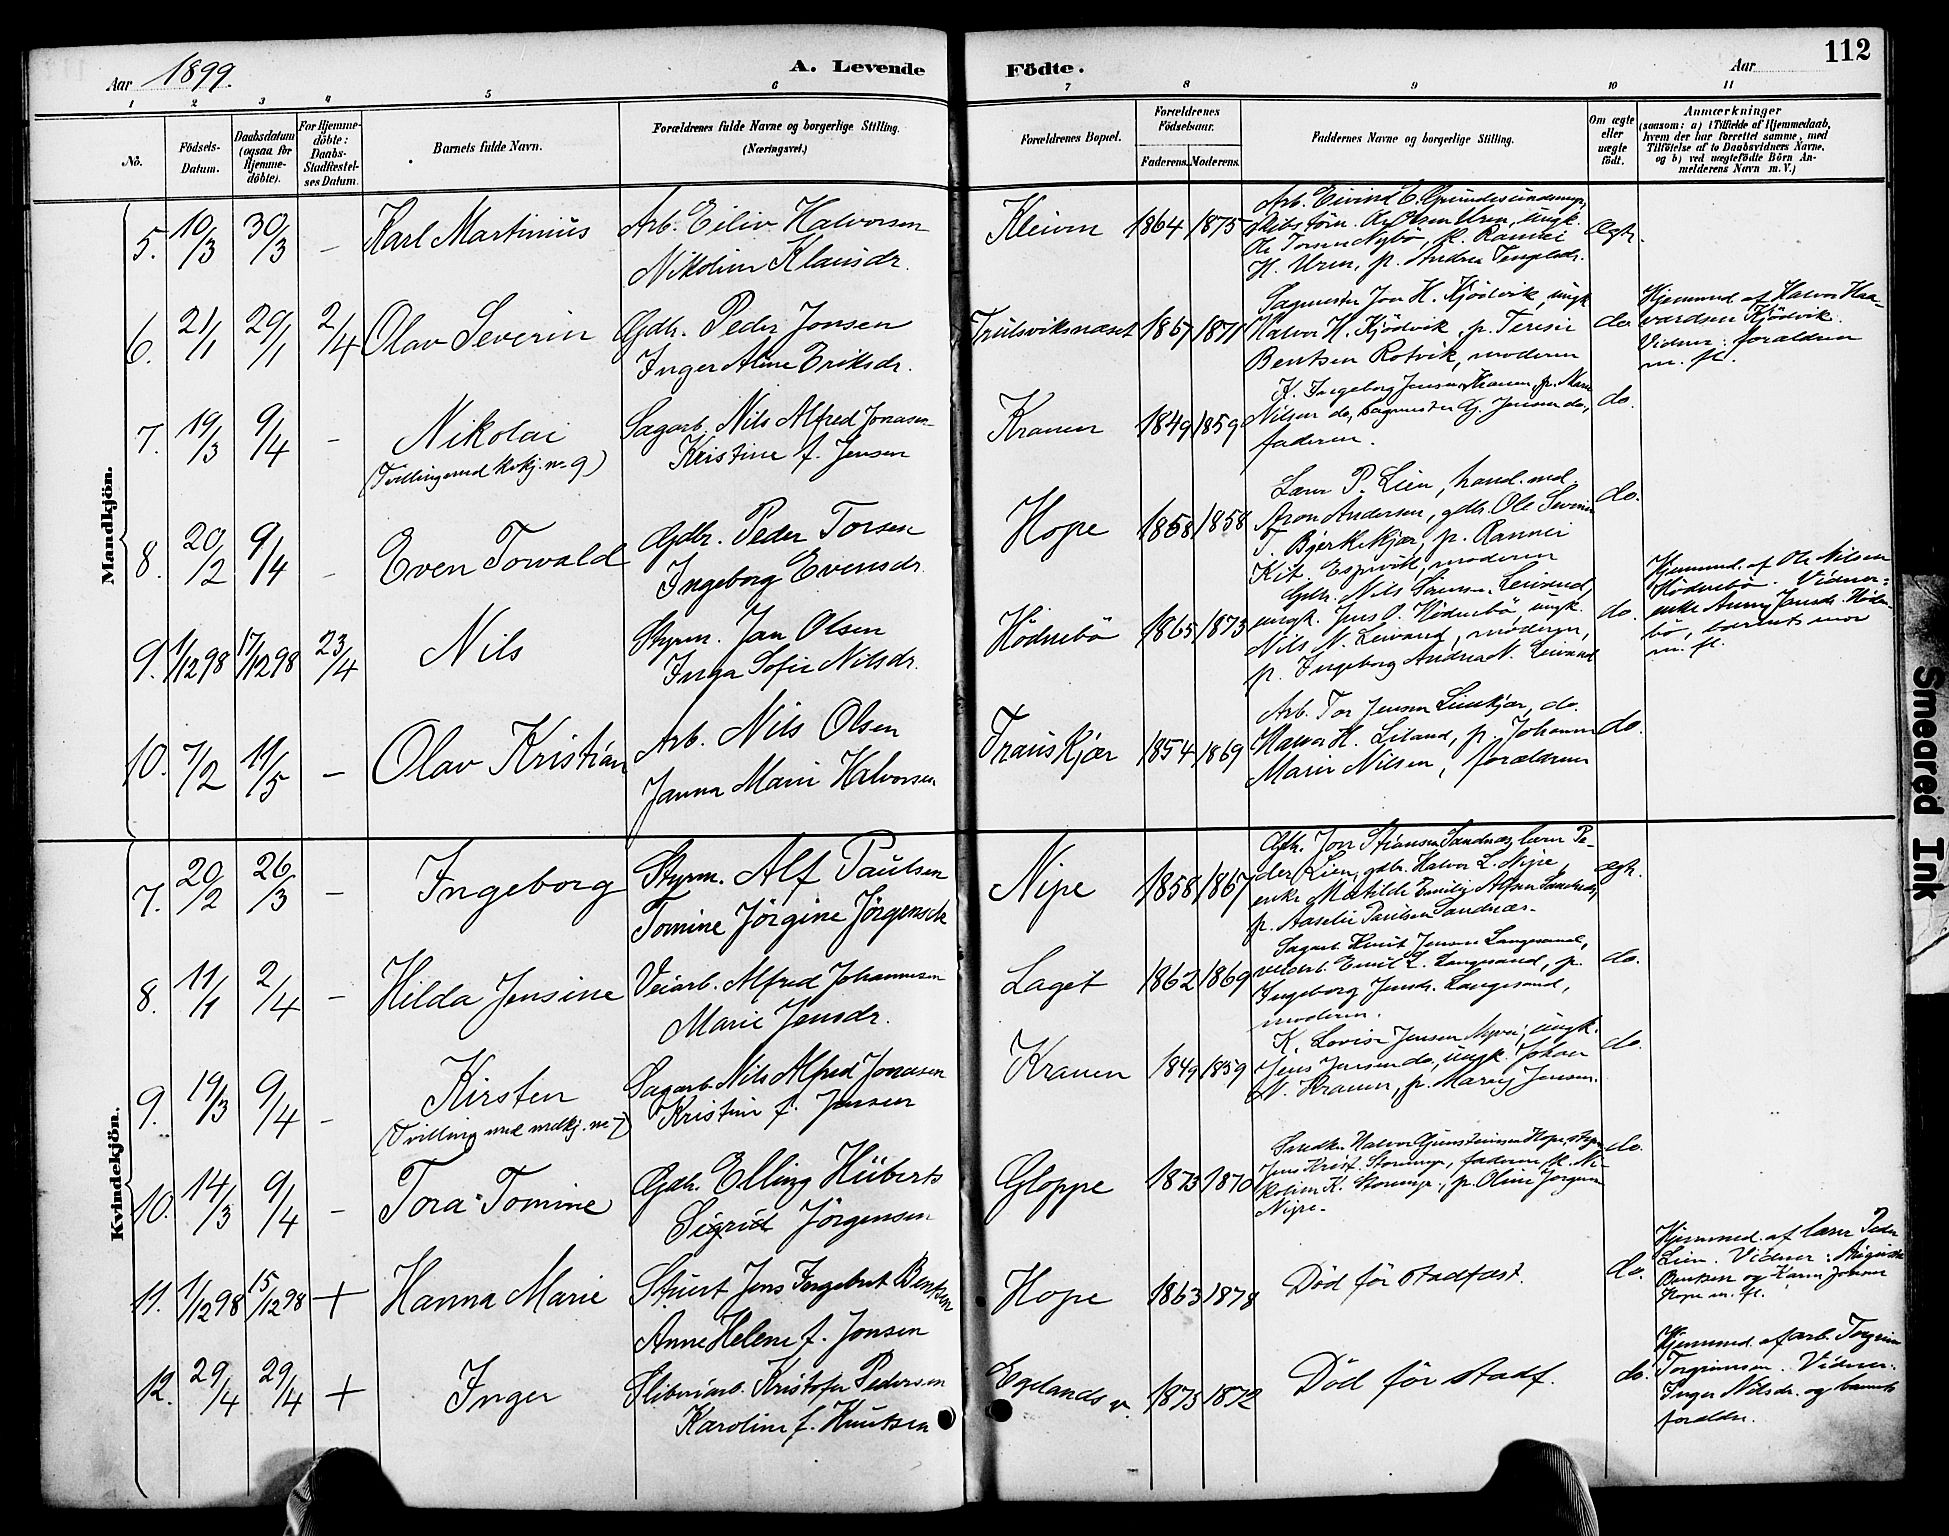 Aar 1899.
A. Levende Födte.
Aar 112
1 2 3 4 5 6 7 8 9 10 11
No.
Födsels-
Datum.
Daabsdatum
(ogsaa for
Hjemme-
döbte).
For Hjemme-
döbte:
Daabs-
Stadfæstel-
ses Datum.
Barnets fulde Navn.
Forældrenes fulde Navne og borgerlige Stilling.
(Næringsvei.)
Forældrenes Bopæl.
Forældrenes
Födselsaar.
Faderens. Moderens.
Faddernes Navne og borgerlige Stilling.
Om ægte
eller
uægte
født.
Anmærkninger
(saasom: a) i Tilfælde af Hjemmedaab,
hvem der har forrettet samme, med
Tilföielse af to Daabsvidners Navne,
og b) ved uægtefödte Börn An-
melderens Navn m. V.)
Mandkjön.
5. 10/3 30/3 - Karl Martinius
Arb. Eiliv Halvorsen
Nikoline Klausdr.
Kleiven 1864 1875
Arb. Eivind E. Grundesundsmyr,
Ole Torsen Nybö, k. Rannei
H. Uren, p. Andrea
Ægte.
6. 21/1 29/1 2/4 Olav Severin
Gdbr. Peder Jonsen
Inger Aline Eriksdr.
Trulsviksnæset 1867 1871
Sagmester Jon H. Kjödvik, ungk.
Halvor H. Kjödvik, p. Teresie
Bentsen Rotvik, moderen
do
Hjemmed. af Halvor Haa-
vardsen Kjödvik.
Vidner: forældren
m. fl.
7. 19/3 9/4 - Nikolai
(Tvilling med kvkj. no 9)
Sagarb. Nils Alfred Jonasen
Kristine f. Jensen
Kranen 1849 1859
K. Ingeborg Jensen Kranen, p. Marie
Nilsen do, Sagmester G. Jensen do,
faderen.
do.
8. 20/2 9/4 - Even Torvald
Gdbr. Peder Torsen
Ingeborg Evensdr.
Hope 1858 1858
Lærer P. Lien, hand. med
Aron Andersen, gdbr. Ole Severin
T. Bjerkekjær, p. Rannei
Kit. Espevik, moderen
do.
9. 1/12 98 17/12 98 23/4 Nils
Styrm. Jan Olsen
Inga Sofie Nilsdr.
Hödnebö 1865 1873
Gdbr. Nils Leivand,
ungk. Jens O. Hödnebö, ungk.
Nils N. Leivand, moderen,
p. Ingeborg Andrea N. Leivand
do.
Hjemmed. af Ole Nilsen
Hödnebö. Vidner:
enke Anny Jensdr. Höde-
bö, barnets mor
m. fl.
10. 7/2 11/5 - Olav Kristian
Arb. Nils Olsen
Janna Marie Halvorsen
Transkjær 1854 1869
Arb. Tor Jensen Lindkjær, do.
Halvor H. Leiland, p. Johanne
Marie Nilsen, forældrene
do.
Kvindekjön.
7. 20/2 26/3 - Ingeborg
Styrm. Alf Paulsen
Tomine Jörgine Jörgensdr
Nipe 1858 1867
Gdb. Jon Stiansen Sandnæs, lærer Pe-
der Lien, gdbr. Halvor L. Nipe,
enke Matilde Emilie Alfsen Sandnæs,
p. Aaselie Paulsen Sandnæs.
ægt.
8. 11/1 2/4 - Hilda Jensine
Veiarb. Alfred Johannesen
Marie Jensdr.
Laget 1862 1869
Sagarb. Knut Jensen Langesand,
veiarb. Emil L. Langesand, p.
Ingeborg Jensdr. Langesand,
moderen.
do.
9. 19/3 9/4 - Kirsten
(Tvilling med mdkj. no 7)
Sagarb. Nils Alfred Jonasen
Kristine f. Jensen
Kranen 1849 1859
K. Lovise Jensen Myren, ungk.
Jens Jensen do, ungk. Johan
N. Kranen, p. Mary Jensen.
do.
10. 14/3 9/4 - Tora Tomine
Gdb. Elling Hüberts
Sigrid Jörgensen
Gloppe 1873 1870
Halvor Gunsteinsen Hope,
Jens Krist. Storemyr, faderen, k. Ni-
koline K. Storemyr, p. Oline Jörgensen
Nipe.
do.
11. 1/12 98 15/12 98 + Hanna Marie
Stuert Jens Ingebret Bentsen
Anne Helene f. Jonsen
Hope 1863 1878
Död för stadfæst.
do.
Hjemmed. af lærer Peder
Lien. Vidner: Auguste
Bentsen og Karen Jonsen
Hope m. fl.
12. 29/4 29/4 + Inger
Sliberiarb. Kristofer Pedersen
Karoline f. Knutsen
Egelands v. 1875 1872
Död för stadf.
do.
Hjemmed. af arb. Torgrim
Torgrimsen. Vidner:
Inger Nilsdr. og barnets
forældre.
Smeared Ink